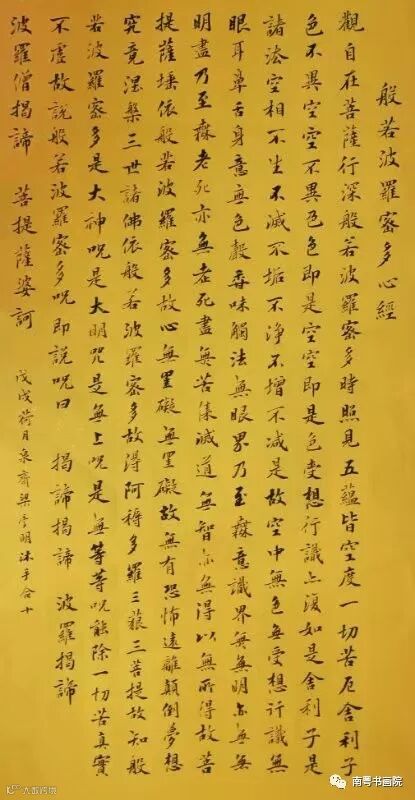 般若波羅密多心經
觀自在菩薩行深般若波羅密多時照見五蘊皆空度一切苦厄舍利子
色不異空空不異色色即是空空即是色受想行識亦復如是舍利子是
諸法空相不生不滅不垢不淨不增不減是故空中無色無受想行識無
眼耳鼻舌身意無色聲香味觸法無眼界乃至無意識界無無明亦無無
明盡乃至無老死亦無老死盡無苦集滅道無智亦無得以無所得故菩
提薩埵依般若波羅密多故心無罣礙無罣礙故無有恐怖遠離顛倒夢想
究竟涅槃三世諸佛依般若波羅密多故得阿耨多羅三藐三菩提故知般
若波羅密多是大神咒是大明咒是無上咒是無等等咒能除一切苦真實
不虛故說般若波羅密多咒即說咒曰 揭諦揭諦 波羅揭諦
波羅僧揭諦 菩提薩婆訶
戊戌荷月泉齋梁明沐手合十
大数跨境
南粤书画院